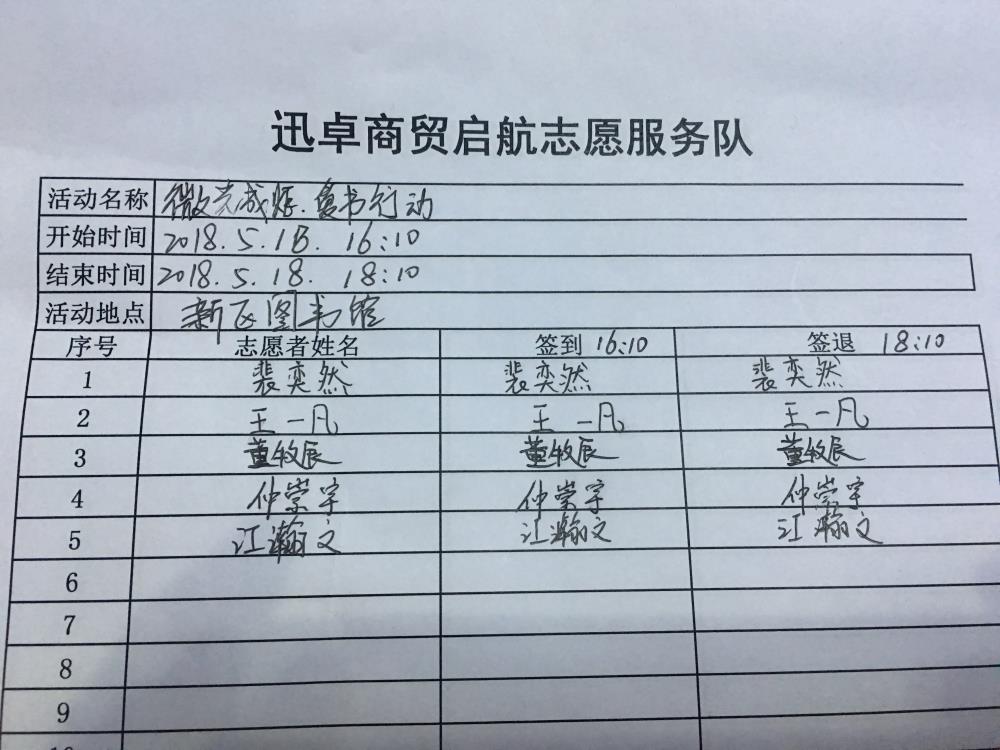 迅卓商贸启航志愿服务队
活动名称 微光成炬.复书行动
开始时间 2018.5.18. 16:10
结束时间 2018.5.18. 18:10
活动地点 新区图书馆
序号 志愿者姓名 签到 16:10 签退 18:10
1 裴奕然 裴奕然 裴奕然
2 王一凡 王一凡 王一凡
3 董牧辰 董牧辰 董牧辰
4 仲崇宇 仲崇宇 仲崇宇
5 江瀚文 江瀚文 江瀚文
6
7
8
9